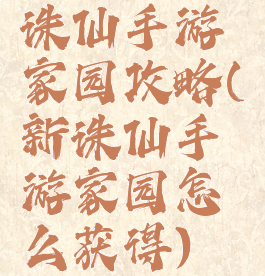 诛仙手游
家园攻略(
新诛仙手
游家园怎
么获得)